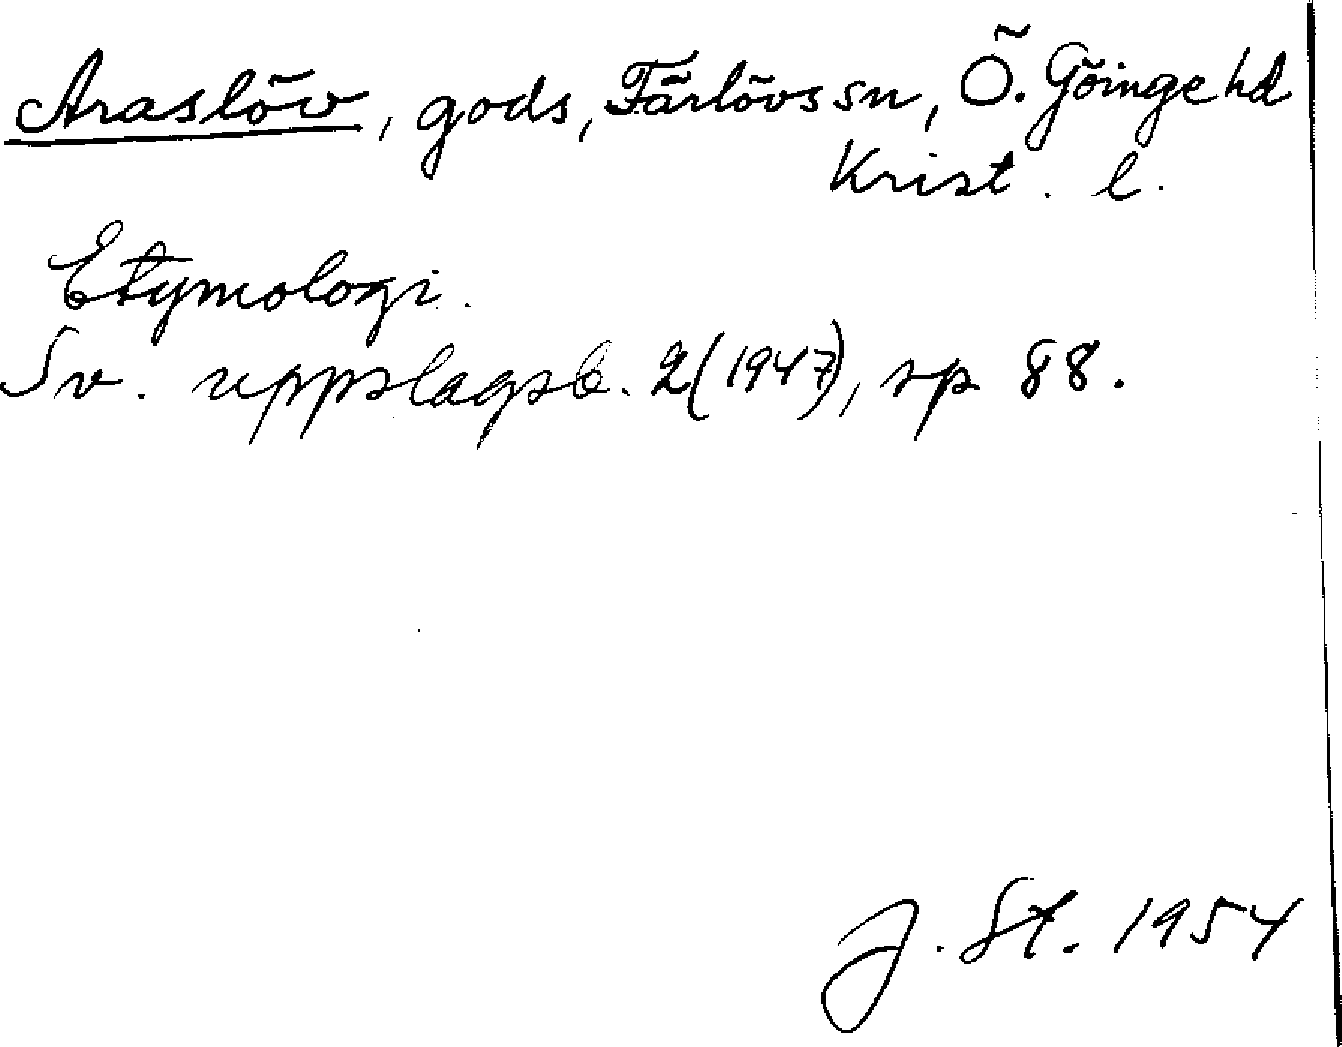 Araslöv, gods, Färlövs sn, Ö. Göinge hd
Krist. l.
Etymologi.
Sv. uppslagsb. 2(1947), sp 88.
J. St. 1954